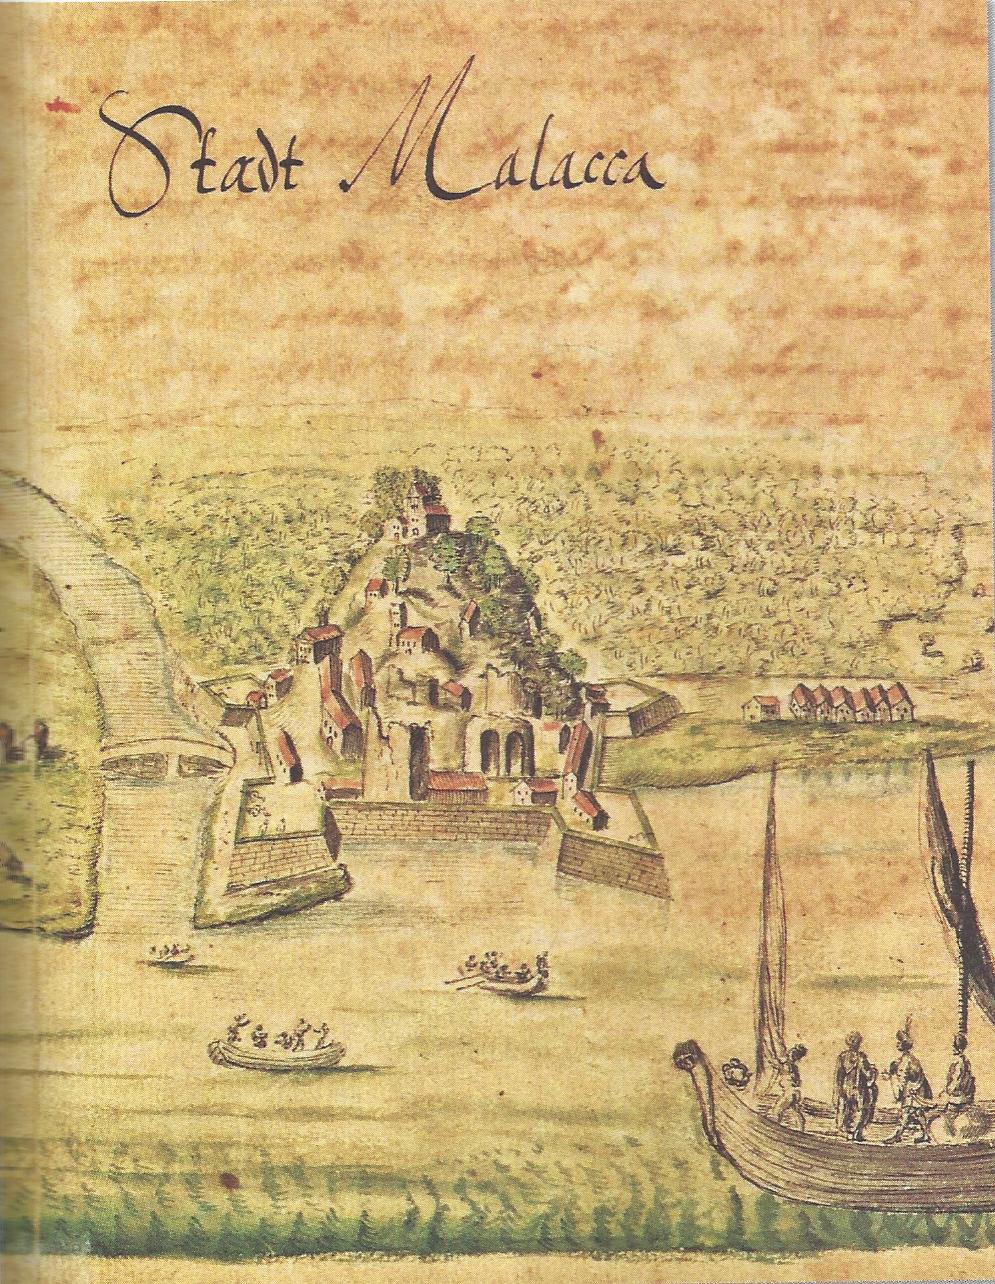 Stadt Malacca